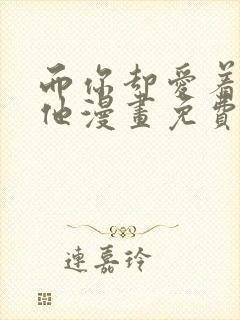 而你却愛着
他漫畫免費
連嘉玲